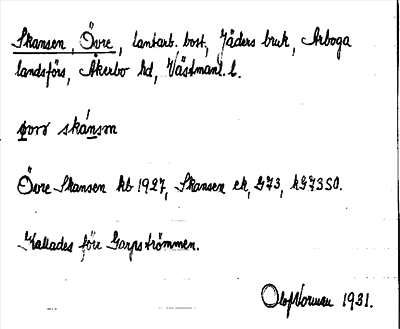 Skansen, Övre, lantarb. bost, Jäders bruk, Arboga
landsförs, Åkerbo hd, Västmanl. l.
skánsən
Övre Skansen kb 1927, Skansen ek, G73, kG73SO.
Kallades förr Garpströmmen.
Olof Norman 1931.